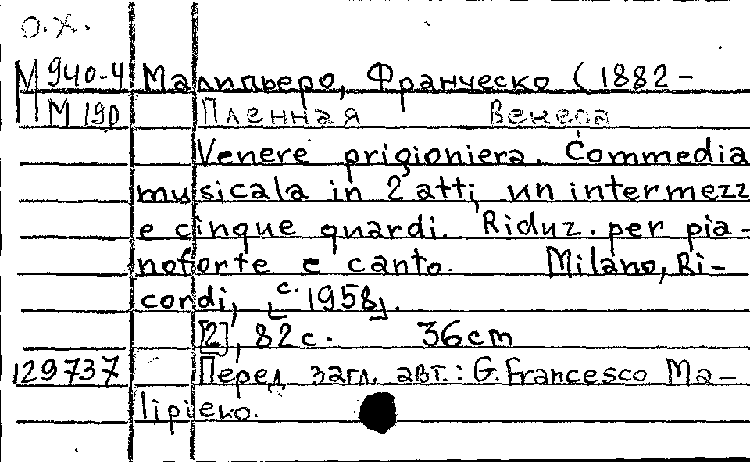 О.Х.
М 940-4 Малипьеро, Франческо (1882-
М 190 Пленная Венера
Venere prigioniera. Commedia
musicala in 2 atti, un intermezz
e cinque quardi. Riduz. per pia-
noforte e canto. Milano, Ri-
cordi, [c. 1958].
[2], 82 с. 36 cm
129737 Перед загл. авт.: G. Francesco Ma-
lipiero.